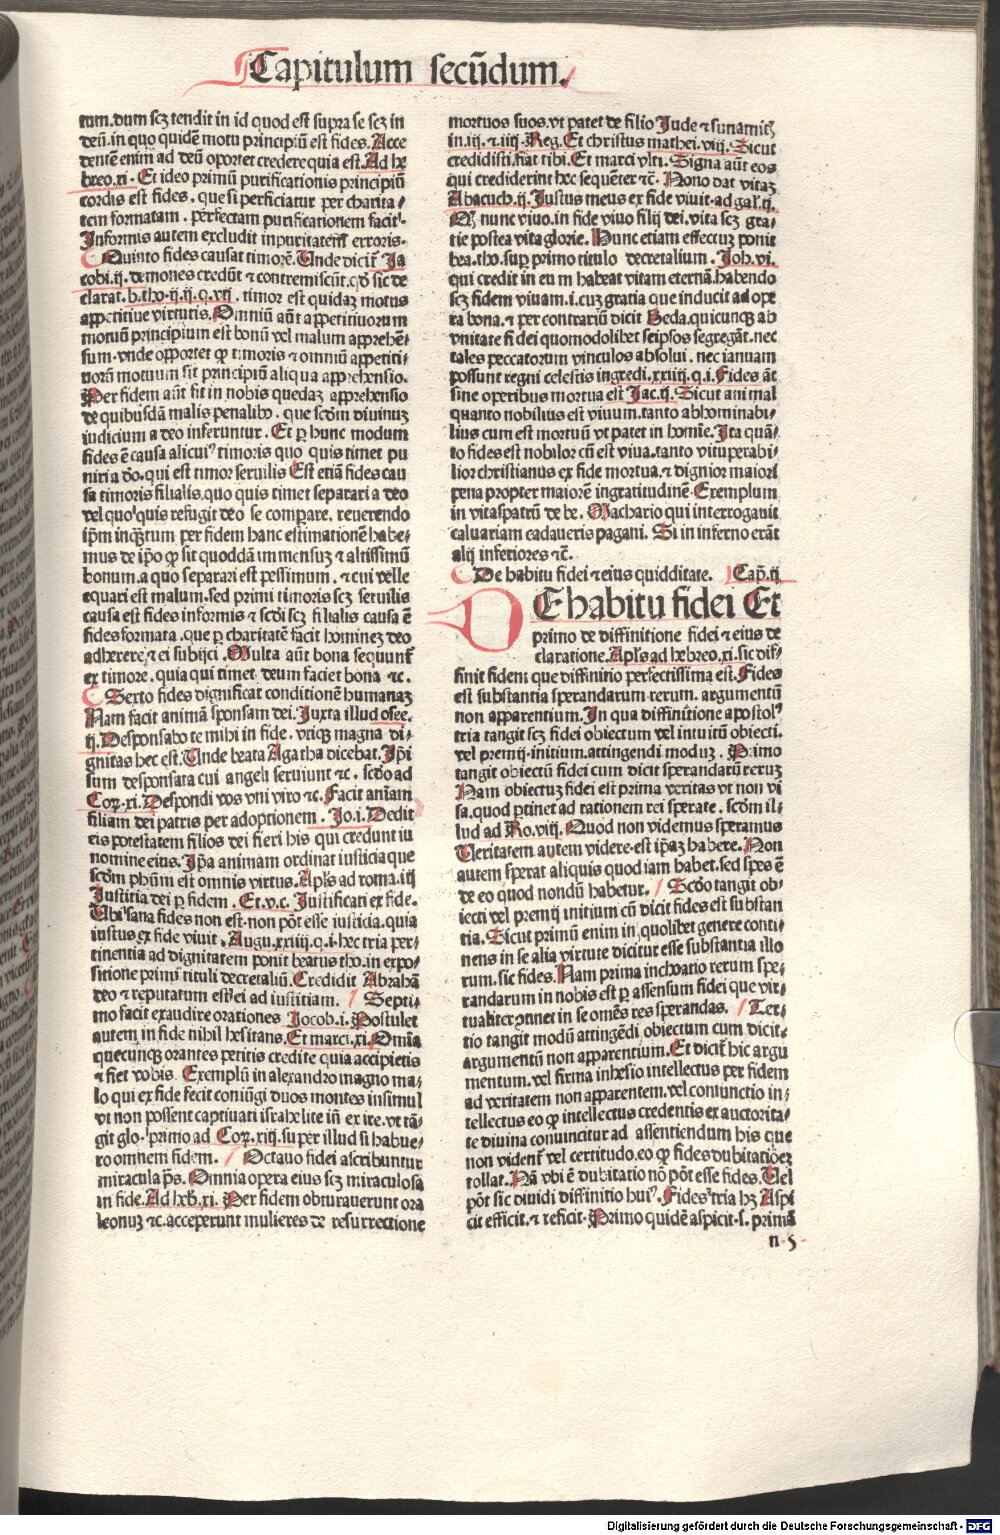 Capitulum secūdum.
tum. dum scz tendit in id quod est supra se scz in
deū. in quo quidē motu principiū est fides. Acce
dentē enim ad deū oportet credere quia est. Ad he
breo. xi. Et ideo primū purificationis principiū
cordis est fides. que si perficiatur per charita/
tem formatam. perfectam purificationem facit.
Informis autem excludit inpuritatem erroris.
Quinto fides causat timorē. Unde dicit Ja
cobi. ij. demones credūt & contremiscūt. qd sic de
clarat. b. tho. ij. ij. q. vij. timor est quidaz motus
appetitiue virtutis. Omniū aūt appetitiuorum
motuū principium est bonū vel malum apprehē/
sum. vnde opportet q timoris & omniū appetiti/
uorū motuum sit principiū aliqua apprehensio.
Per fidem aūt fit in nobis quedaz apprehensio
de quibusdā malis penalibꝰ. que scdm diuinuz
iudicium a deo inferuntur. Et p hunc modum
fides ē causa alicuiꝰ timoris quo quis timet pu
niri a deo. qui est timor seruilis Est etiā fides cau
sa timoris filialis. quo quis timet separari a deo
vel quo quis refugit deo se comparare. reuerendo
ipm inqtum per fidem hanc estimationem habe/
mus de ipo q sit quoddā immensuz & altissimū
bonum. a quo separari est pessimum. & cui velle
equari est malum. sed primi timoris scz seruilis
causa est fides informis & scdi scz filialis causa ē
fides formata. que p charitatē facit hominez deo
adherere & ei subijci. Multa aūt bona sequunt
ex timore. quia qui timet deum faciet bona &c.
Sexto fides dignificat conditionē humanaz
Nam facit animā sponsam dei. Juxta illud osee.
ij. Desponsabo te mihi in fide. vtiqz magna di/
gnitas hec est. Unde beata Agatha dicebat. Jpi
sum desponsata cui angeli seruiunt &c. scdo ad
Cor. xi. Despondi vos vni viro &c. Facit aniam
filiam dei patris per adoptionem. Jo. i. Dedit
eis potestatem filios dei fieri his qui credunt in
nomine eius. Jpa animam ordinat iusticia que
scdm phūm est omnis virtus. Apls ad roma. iij
Justitia dei p fidem. Et. v. c. Justificati ex fide.
Ubi sana fides non est. non pōt esse iusticia. quia
iustus ex fide viuit. Augu. xxiiij. q. i. hec tria per/
tinentia ad dignitatem ponit beatus tho. in expo/
sitione primi tituli decretaliū. Credidit Abrahā
deo & reputatum est ei ad iustitiam. Septi/
mo facit exaudire orationes Jocob. i. Postulet
autem in fide nihil hesitans. Et marci. xi. Omia
quecunqz orantes petitis credite quia accipietis
& fiet vobis. Exemplū in alexandro magno ma/
lo qui ex fide fecit coniūgi duos montes insimul
vt non possent captiuati israhelite inde exire. vt tā/
git glo. primo ad Cor. xiij. super illud si habue/
ro omnem fidem. Octauo fidei ascribuntur
miracula ps. Omnia opera eius scz miraculosa
in fide. Ad heb. xi. Per fidem obturauerunt ora
leonuz &c. acceperunt mulieres de resurrectione
mortuos suos. vt patet de filio Jude & sunamit
in. iij. & iiij. Reg. Et christus mathei. viij. Sicut
credidisti. fiat tibi. Et marci vlti. Signa aūt eos
qui crediderint hec sequēter &c. Nono dat vitaz
Abacuch. ij. Justus meus ex fide viuit. ad gal. ij.
nunc viuo. in fide viuo filij dei. vita scz gra/
tie postea vita glorie. Hunc etiam effectuz ponit
bea. tho. sup primo titulo decretalium. Joh. vi.
qui credit in eum habeat vitam eternā. habendo
scz fidem viuam. i. cuz gratia que inducit ad ope
ra bona. & per contrariū dicit Beda. quicunqz ab
vnitate fidei quomodolibet seipsos segregāt. nec
tales peccatorum vinculos absolui. nec ianuam
possunt regni celestis ingredi. xxiiij. q. i. Fides āt
sine operibus mortua est Jac. ij. Sicut animal
quanto nobilius est viuum. tanto abhominabi/
lius cum est mortuū vt patet in homie. Jta quā/
to fides est nobilor cū est viua. tanto vituperabi/
lior christianus ex fide mortua. & dignior maiori
pena propter maiorē ingratitudinē Exemplum
in vitaspatrū de be. Machario qui interrogauit
caluariam cadaueris pagani. Si in inferno erāt
alij inferiores &c.
De habitu fidei & eius quidditate. Cap. ij
DE habitu fidei Et
primo de diffinitione fidei & eius de
claratione. Apls ad hebreo. xi. sic dif/
finit fidem que diffinitio perfectissima est. Fides
est substantia sperandarum rerum. argumentū
non apparentium. In qua diffinitione apostolꝰ
tria tangit scz fidei obiectum vel intuitū obiecti.
vel premij initium. attingendi moduz. Primo
tangit obiectū fidei cum dicit sperandarū reruz
Nam obiectuz fidei est prima veritas vt non vi
sa. quod ptinet ad rationem rei sperate. scdm il/
lud ad Ro. viij. Quod non videmus speramus
Ueritatem autem videre est ipaz habere. Non
autem sperat aliquis quod iam habet. sed spes ē
de eo quod nondū habetur. Scdo tangit ob/
iecti vel premij initium cū dicit fides est substan
tia. Sicut primū enim in quolibet genere conti/
nens in se alia virtute dicitur esse substantia illo
rum. sic fides. Nam prima inchoatio rerum spe/
randarum in nobis est p assensum fidei que vir/
tualiter ɔtinet in se omēs res sperandas. Ter/
tio tangit modū attingēdi obiectum cum dicit.
argumentū non apparentium. Et dicit hic argu
mentum. vel firma inhesio intellectus per fidem
ad veritatem non apparentem. vel conuinctio in/
tellectus eo q intellectus credentis ex auctorita/
te diuina conuincitur ad assentiendum his que
non vident vel certitudo. eo q fides dubitatiōez
tollat. Nā vbi ē dubitatio nō pōt esse fides. Uel
pōt sic diuidi diffinitio huiꝰ. Fides tria hz Aspi
cit efficit. & reficit. Primo quidē aspicit. s. primā
n. 5
Digitalisierung gefördert durch die Deutsche Forschungsgemeinschaft - DFG